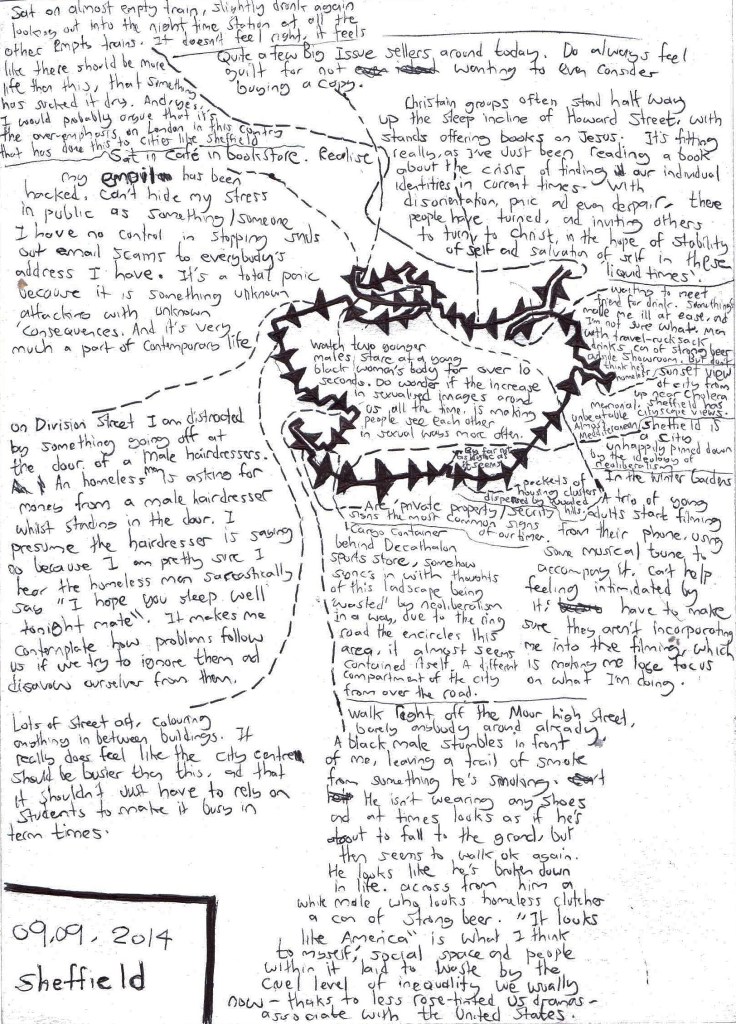 Sat on almost empty train, slightly drunk again
looking out into the night time station at all the
other empty trains. It doesn't feel right, it feels
like there should be more
life then this, that something
has sucked it dry. And yes,
I would probably argue that it's
the over-emphasis on London in this country
that has done this to cities like Sheffield
Quite a few Big Issue sellers around today. Do always feel
guilt for not wanting to even consider
buying a copy.
Christain groups often stand half way
up the steep incline of Howard Street, with
stands offering books on Jesus. It's fitting
really, as I've just been reading a book
about the crisis of finding our individual
identities in current times. With
disorientation, panic and even despair, there
people have turned, and inviting others
to turn to Christ, in the hope of stability
of self and salvation of self in these
'liquid times'.
Sat in Café in bookstore. Realise
my email has been
hacked. Can't hide my stress
in public as something/someone
I have no control in stopping sends
out email scams to everybody's
address I have. It's a total panic
because it is something unknown
attacking with unknown
consequences. And it's very
much a part of Contemporary life
waiting to meet
friend for drink. Something's
made me ill at ease, and
I'm not sure what. Man
with travel-rucksack
drinks can of strong beer
outside Showroom. But don't
think he's
homeless
sunset view
of city from
up near Cholera
memorial. Sheffield has
unbeatable cityscape views.
Almost
Mediterranean
Sheffield is
a city
unhappily pinned down
by the ideology of
neoliberalism
watch two younger
males, stare at a young
black woman's body for over 10
seconds. Do wonder if the increase
in sexualised images around
us all the time, is making
people see each other
in sexual ways more often.
pockets of
housing cluster
dispersed by wooded
hills.
Are 'private property/security'
signs the most common signs
of our time.
In the Winter Gardens
A trio of young
adults start filming
from their phone, using
some musical tune to
accompany it. Can't help
feeling intimidated by
it's have to make
sure they aren't incorporating
me into the filming, which
is making me lose focus
on what I'm doing.
on Division Street I am distracted
by something going off at
the door of a male hairdressers.
An homeless man is asking for
money from a male hairdresser
whilst standing in the door. I
presume the hairdresser is saying
no because I am pretty sure I
hear the homeless man sarcastically
say "I hope you sleep well
tonight mate". It makes me
contemplate how problems follow
us if we try to ignore them and
disavow ourselves from them.
Cargo container
behind Decathalon
sports store, somehow
sync's in with thoughts
of this landscape being
'wasted' by neoliberalism
in a way, due to the ring
road the encircles this
area, it almost seems
contained itself. A different
compartment of the city
from over the road.
Lots of street art, colouring
anything in between buildings. It
really does feel like the city centre
should be busier than this, and that
it shouldn't just have to rely on
students to make it busy in
term times.
Walk right off the Moor high street,
barely anybody around already
A black male stumbles in front
of me, leaving a trail of smoke
from something he's smoking.
He isn't wearing any shoes
and at times looks as if he's
about to fall to the ground, but
then seems to walk ok again.
He looks like he's broken down
in life. across from him a
white male who looks homeless clutches
a can of strong beer. "It looks
like America" is what I think
to myself; social space and people
within it laid to waste by the
cruel level of inequality we usually
now - thanks to less rose-tinted US dramas -
associate with the United States.
09.09.2014
Sheffield